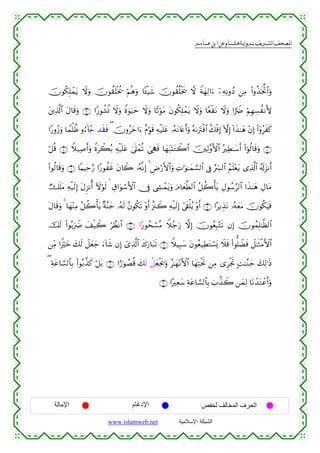 المصحف الشريف برواية هشام عن ابن عامر
وَٱتَّخَذُوا۟ مِن دُونِهِۦٓ ءَالِهَةً لَّا يَخْلُقُونَ شَيْـًٔا وَهُمْ يُخْلَقُونَ وَلَا يَمْلِكُونَ
لِأَنفُسِهِمْ ضَرًّا وَلَا نَفْعًا وَلَا يَمْلِكُونَ مَوْتًا وَلَا حَيَوٰةً وَلَا نُشُورًا ۝ وَقَالَ ٱلَّذِينَ
كَفَرُوٓا۟ إِنْ هَـٰذَآ إِلَّآ إِفْكٌ ٱفْتَرَىٰهُ وَأَعَانَهُۥ عَلَيْهِ قَوْمٌ ءَاخَرُونَ ۖ فَقَد جَّآءُو ظُلْمًا وَزُورًا
۝ وَقَالُوٓا۟ أَسَـٰطِيرُ ٱلْأَوَّلِينَ ٱكْتَتَبَهَا فَهِىَ تُمْلَىٰ عَلَيْهِ بُكْرَةً وَأَصِيلًا ۝ قُلْ
أَنزَلَهُ ٱلَّذِى يَعْلَمُ ٱلسِّرَّ فِى ٱلسَّمَـٰوَٰتِ وَٱلْأَرْضِ ۚ إِنَّهُۥ كَانَ غَفُورًا رَّحِيمًا ۝ وَقَالُوا۟
مَالِ هَـٰذَا ٱلرَّسُولِ يَأْكُلُ ٱلطَّعَامَ وَيَمْشِى فِى ٱلْأَسْوَاقِ ۙ لَوْلَآ أُنزِلَ إِلَيْهِ مَلَكٌ
فَيَكُونَ مَعَهُۥ نَذِيرًا ۝ أَوْ يُلْقَىٰٓ إِلَيْهِ كَنزٌ أَوْ تَكُونُ لَهُۥ جَنَّةٌ يَأْكُلُ مِنْهَا ۚ وَقَالَ
ٱلظَّـٰلِمُونَ إِن تَتَّبِعُونَ إِلَّا رَجُلًا مَّسْحُورًا ۝ ٱنظُرْ كَيْفَ ضَرَبُوا۟ لَكَ
ٱلْأَمْثَـٰلَ فَضَلُّوا۟ فَلَا يَسْتَطِيعُونَ سَبِيلًا ۝ تَبَارَكَ ٱلَّذِىٓ إِن شَآءَ جَعَلَ لَكَ خَيْرًا مِّن
ذَٰلِكَ جَنَّـٰتٍ تَجْرِى مِن تَحْتِهَا ٱلْأَنْهَـٰرُ وَيَجْعَلُ لَّكَ قُصُورًا ۝ بَلْ كَذَّبُوا۟ بِٱلسَّاعَةِ ۖ
وَأَعْتَدْنَا لِمَن كَذَّبَ بِٱلسَّاعَةِ سَعِيرًا ۝
الحرف المخالف لحفص الإدغام الإمالة
الشبكة الإسلامية www.islamweb.net